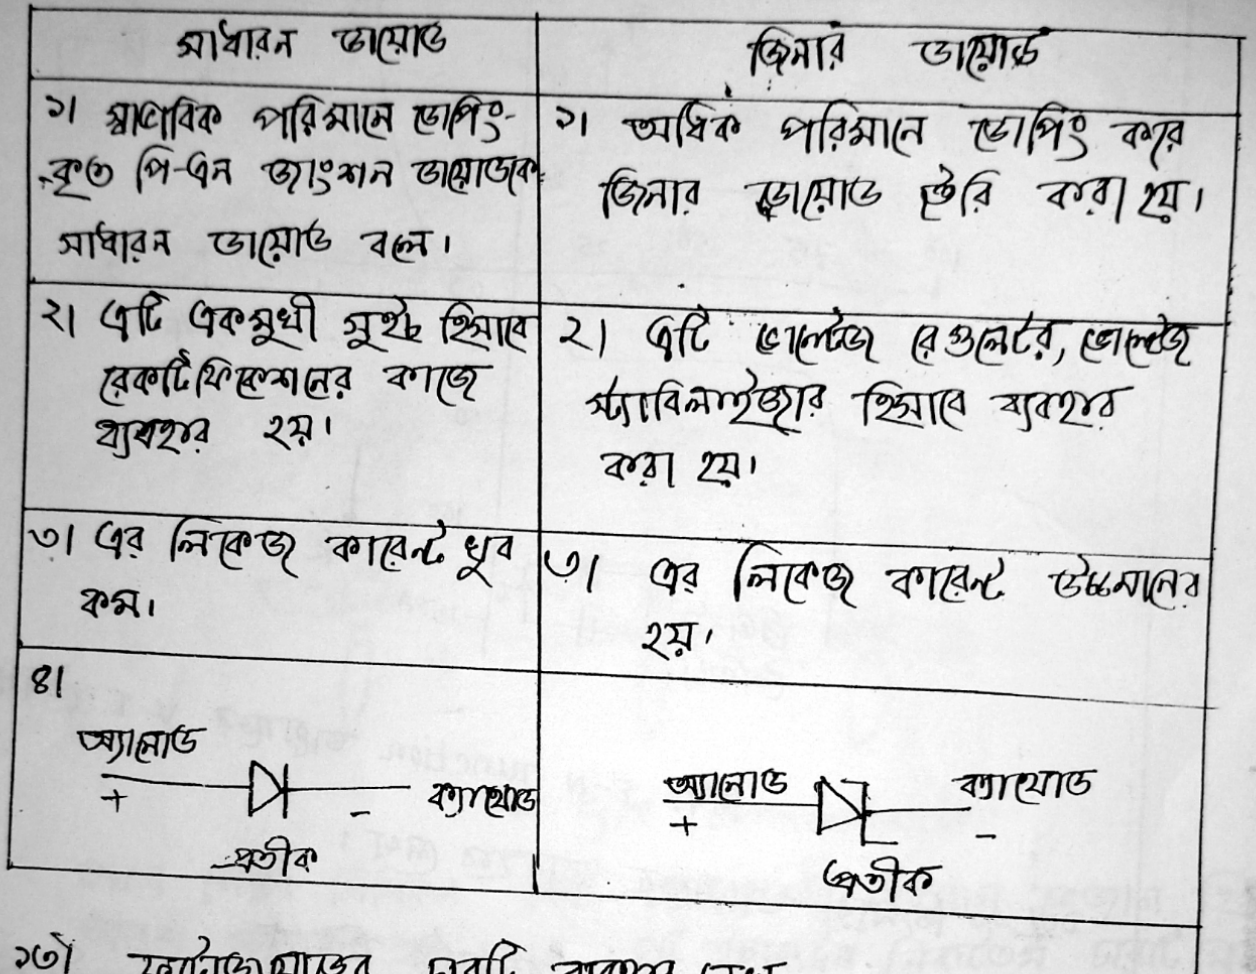 সাধারন ডায়োড
জিনার ডায়োড
১। স্বাভাবিক পরিমানে ডোপিং-
কৃত পি-এন জাংশন ডায়োডকে
সাধারন ডায়োড বলে।
১। অধিক পরিমানে ডোপিং করে
জিনার ডায়োড তৈরি করা হয়।
২। এটি একমুখী সুইচ হিসাবে
রেকটিফিকেশনের কাজে
ব্যবহার হয়।
২। এটি ভোল্টেজ রেগুলেটর, ভোল্টেজ
স্ট্যাবিলাইজার হিসাবে ব্যবহার
করা হয়।
৩। এর লিকেজ কারেন্ট খুব
কম।
৩। এর লিকেজ কারেন্ট উচ্চমানের
হয়।
৪।
অ্যানোড
+ - ক্যাথোড
প্রতীক
অ্যানোড ক্যাথোড
+ -
প্রতীক
১৩।